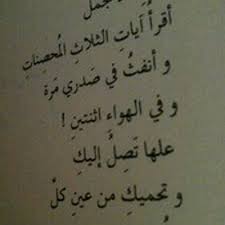 جمل
أقرأُ آياتِ الثلاثِ المُحصِناتِ
و أنفثُ في صَدري مَرة
و في الهواءِ اثنتينِ !
علها تَصِلُ إليكِ
و تحميكِ من عينِ كلَّ